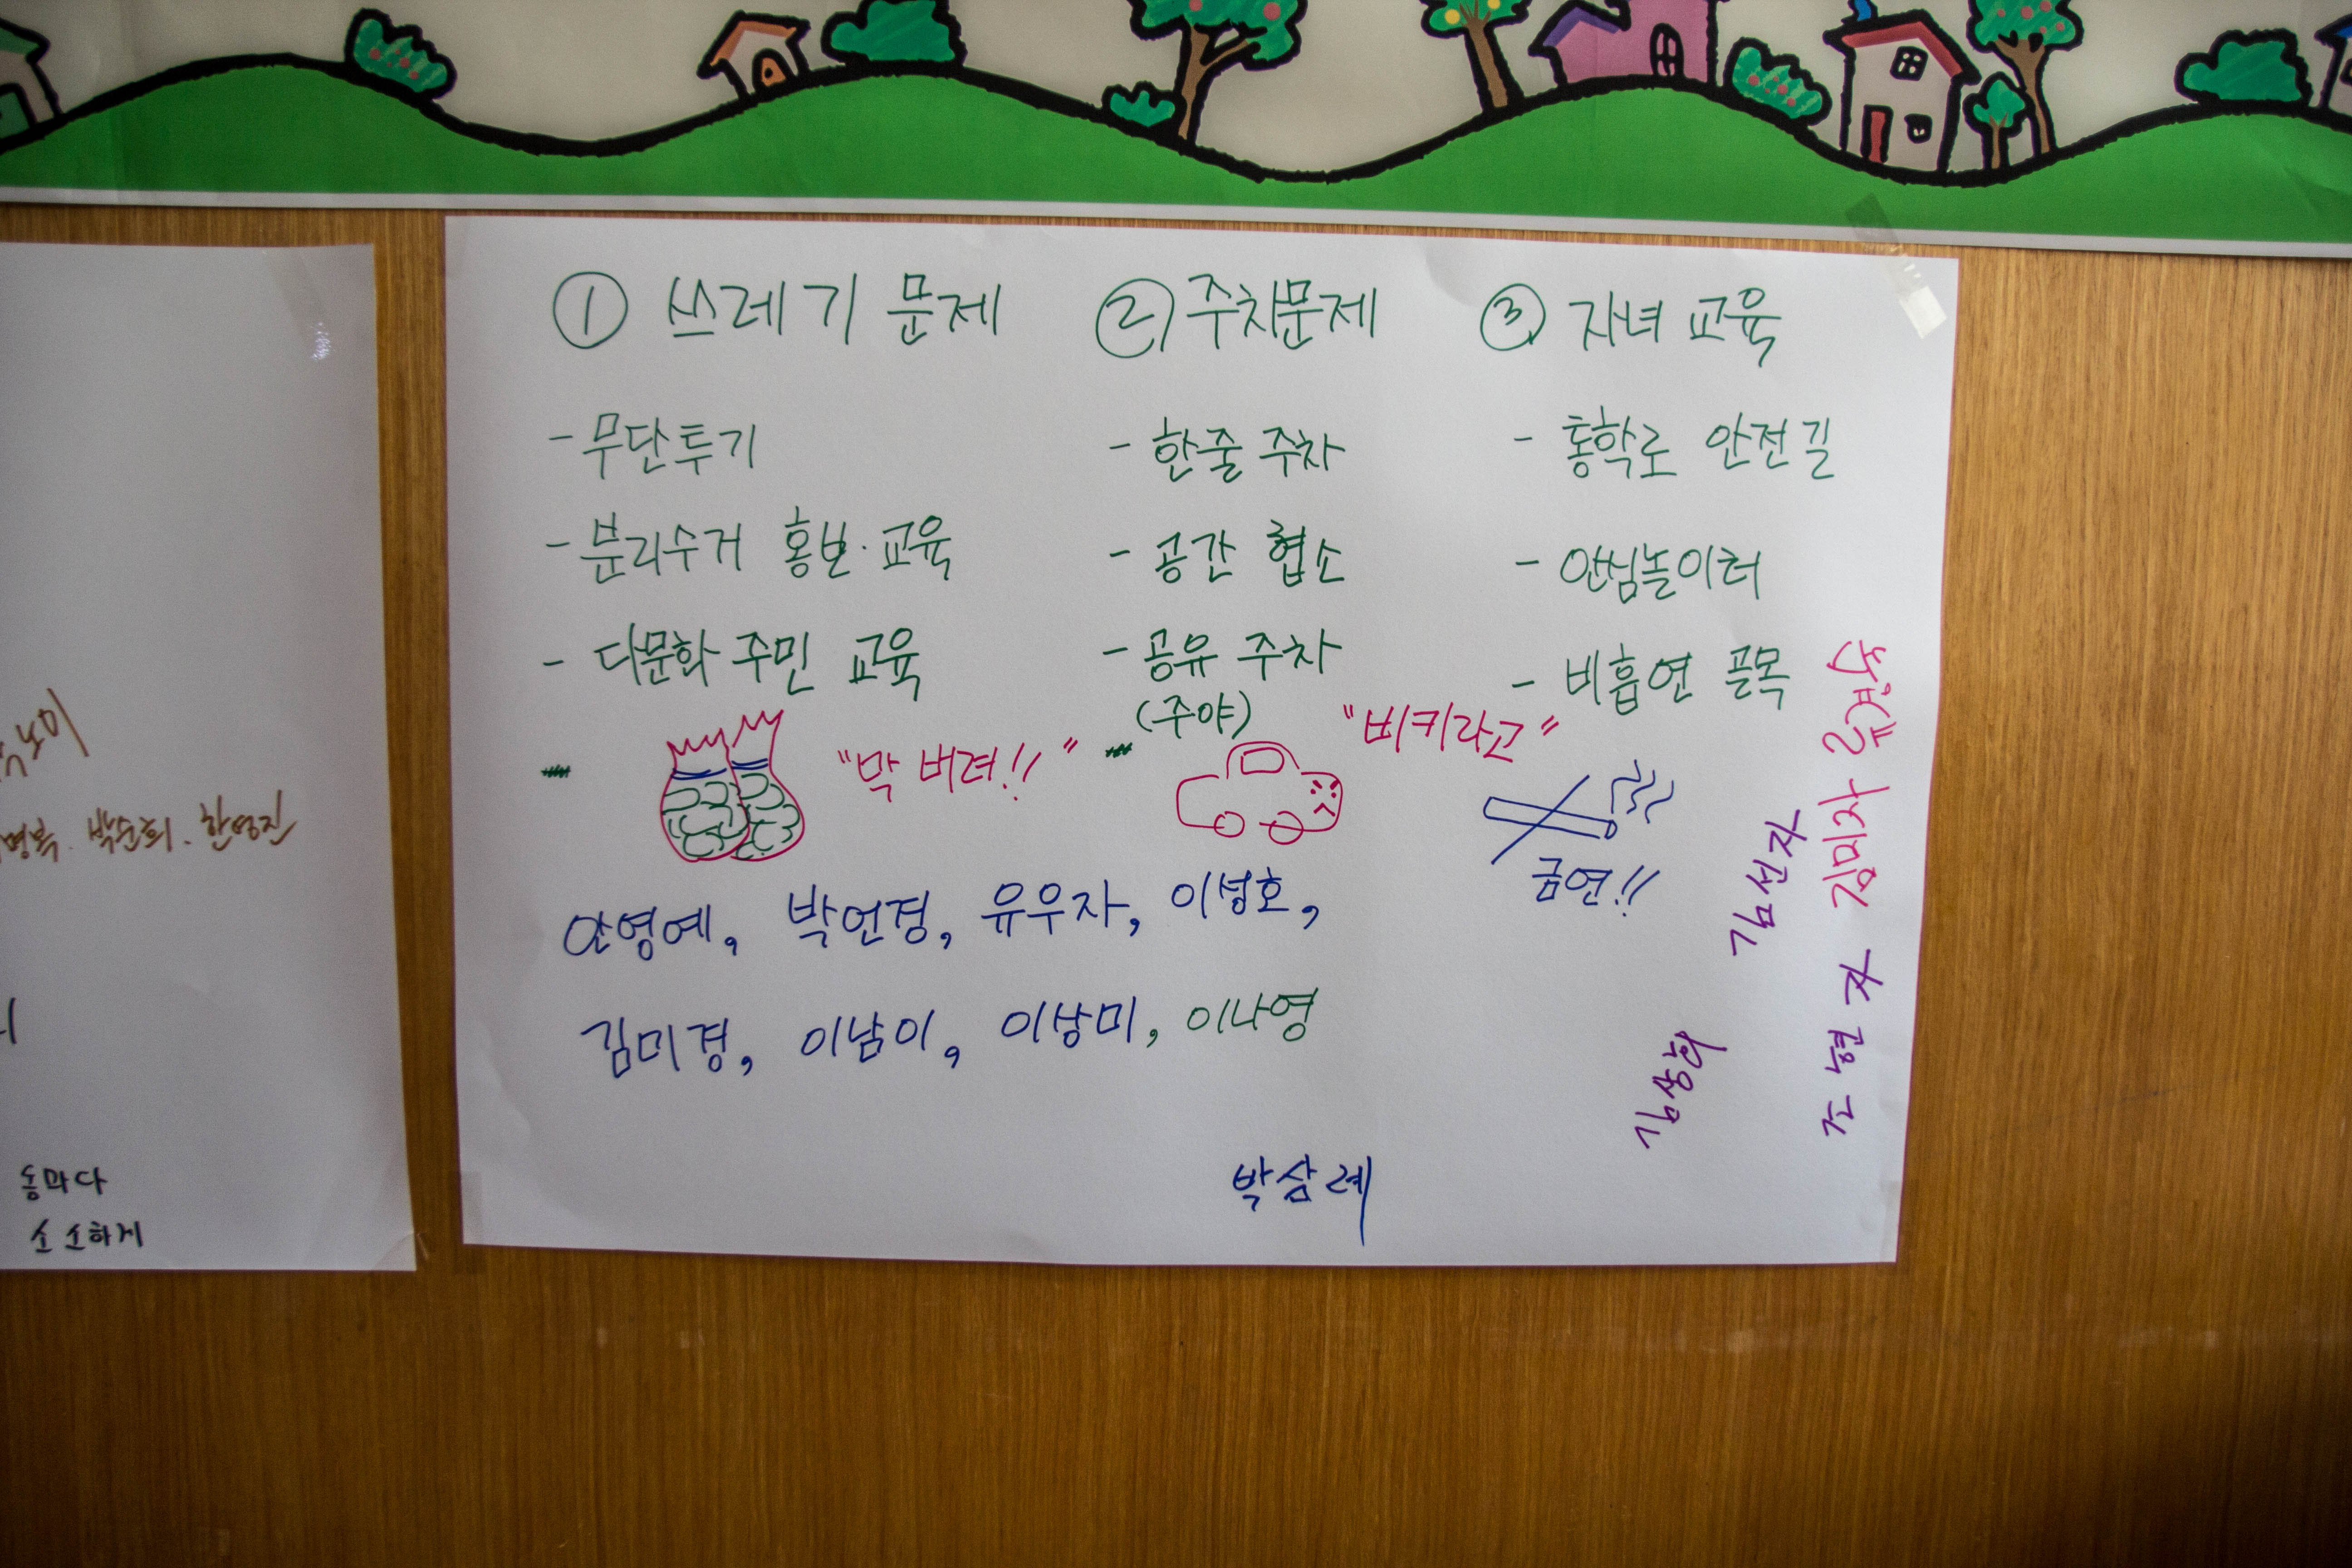 ① 쓰레기 문제 ② 주차문제 ③ 자녀 교육
- 무단투기 - 한줄 주차 - 통학로 안전길
- 분리수거 홍보·교육 - 공간 협소 - 안심놀이터
- 다문화 주민 교육 - 공유 주차 - 비흡연 골목
(주야)
"막 버려!!" "비키라고"
금연!!
안영예, 박언경, 유우자, 이성호,
김미경, 이남이, 이상미, 이나영
박삼례
김상희
김선자
조현자
김미자
박순희. 한영진
동마다
소소하게